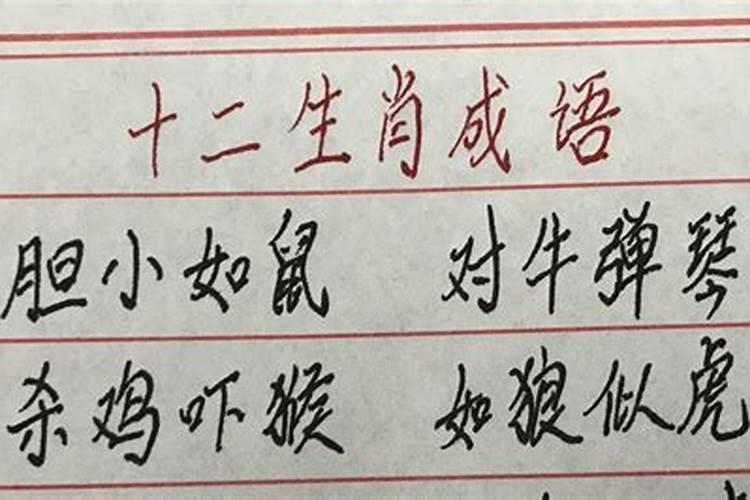 十二生肖成语
胆小如鼠 对牛弹琴
杀鸡吓猴 如狼似虎